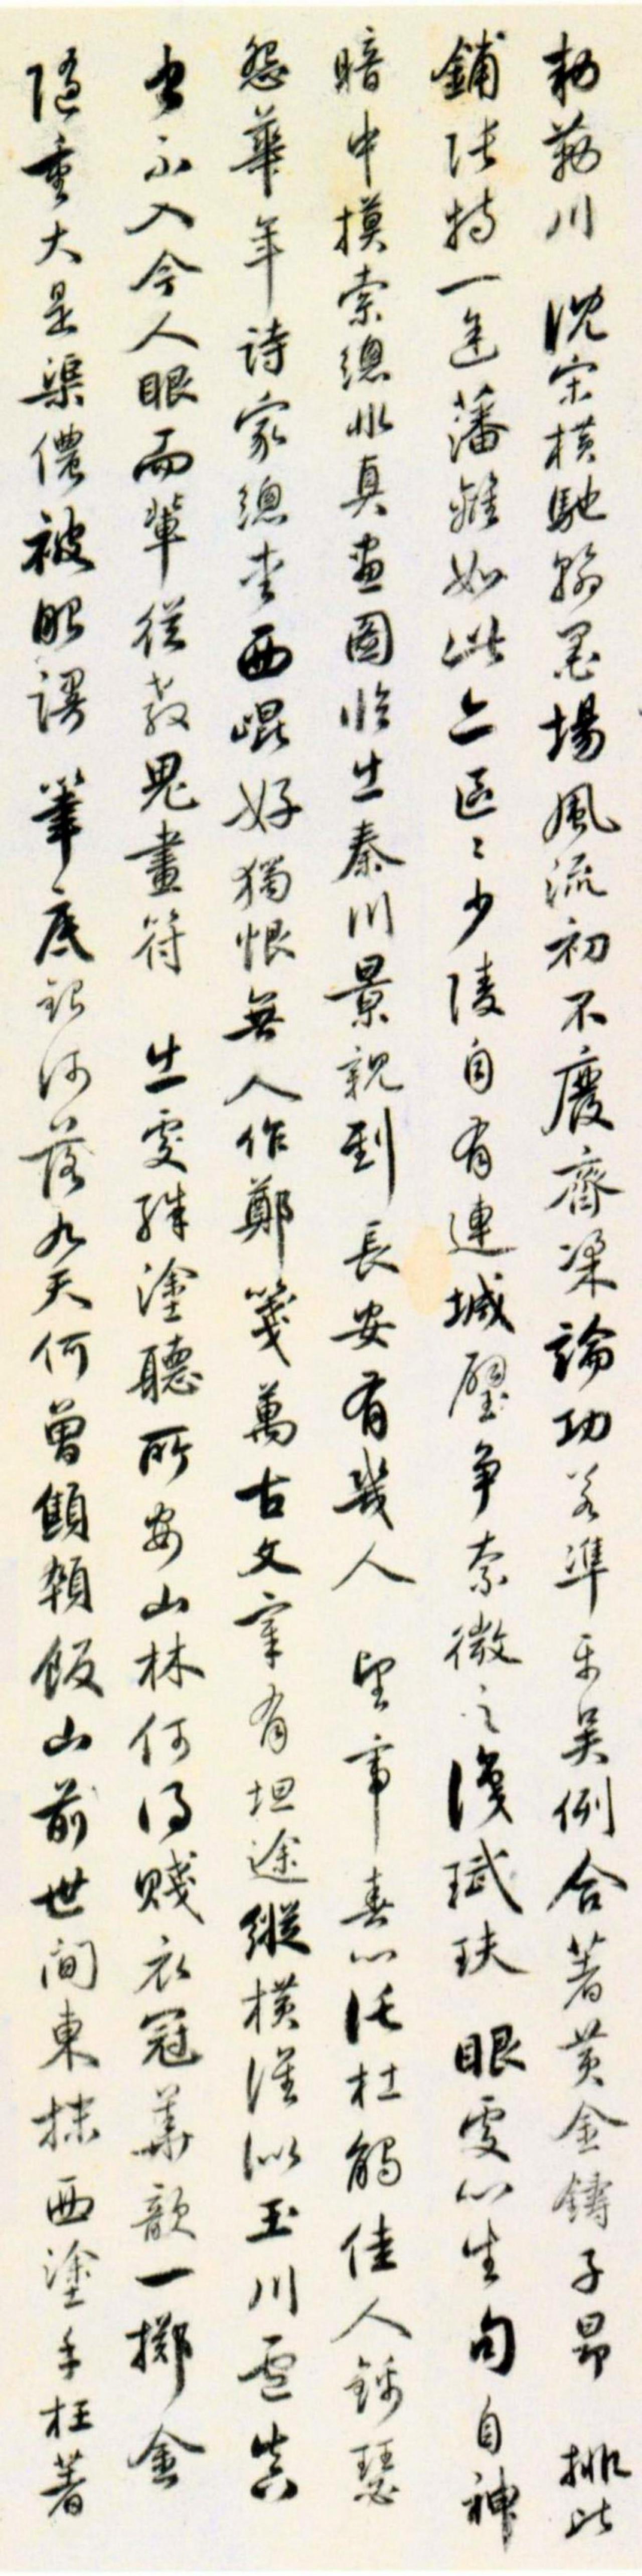 勅勒川 沈宋橫馳翰墨場風流初不廢齊梁論功若準平吳例合著黃金鑄子昂 排比
鋪張特一途藩籬如此亦區〻少陵自有連城璧爭奈微之識珷玞 眼處心生句自神
暗中摸索總非真畫圖臨出秦川景親到長安有幾人 望帝春心託杜鵑佳人錦瑟
怨華年詩家總愛西崑好獨恨無人作鄭箋 萬古文章有坦途縱橫誰似玉川盧真
書不入今人眼兩輩從教鬼畫符 出處殊塗聽所安山林何得賤衣冠華歆一擲金
隨重大是渠儂被眼謾 筆底銀河落九天何曾顦顇飯山前世間東抹西塗手枉著